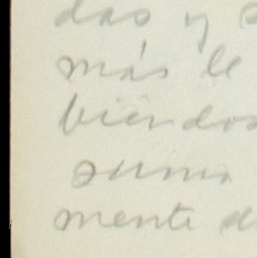 das y
más le
biendos
suma
mente d